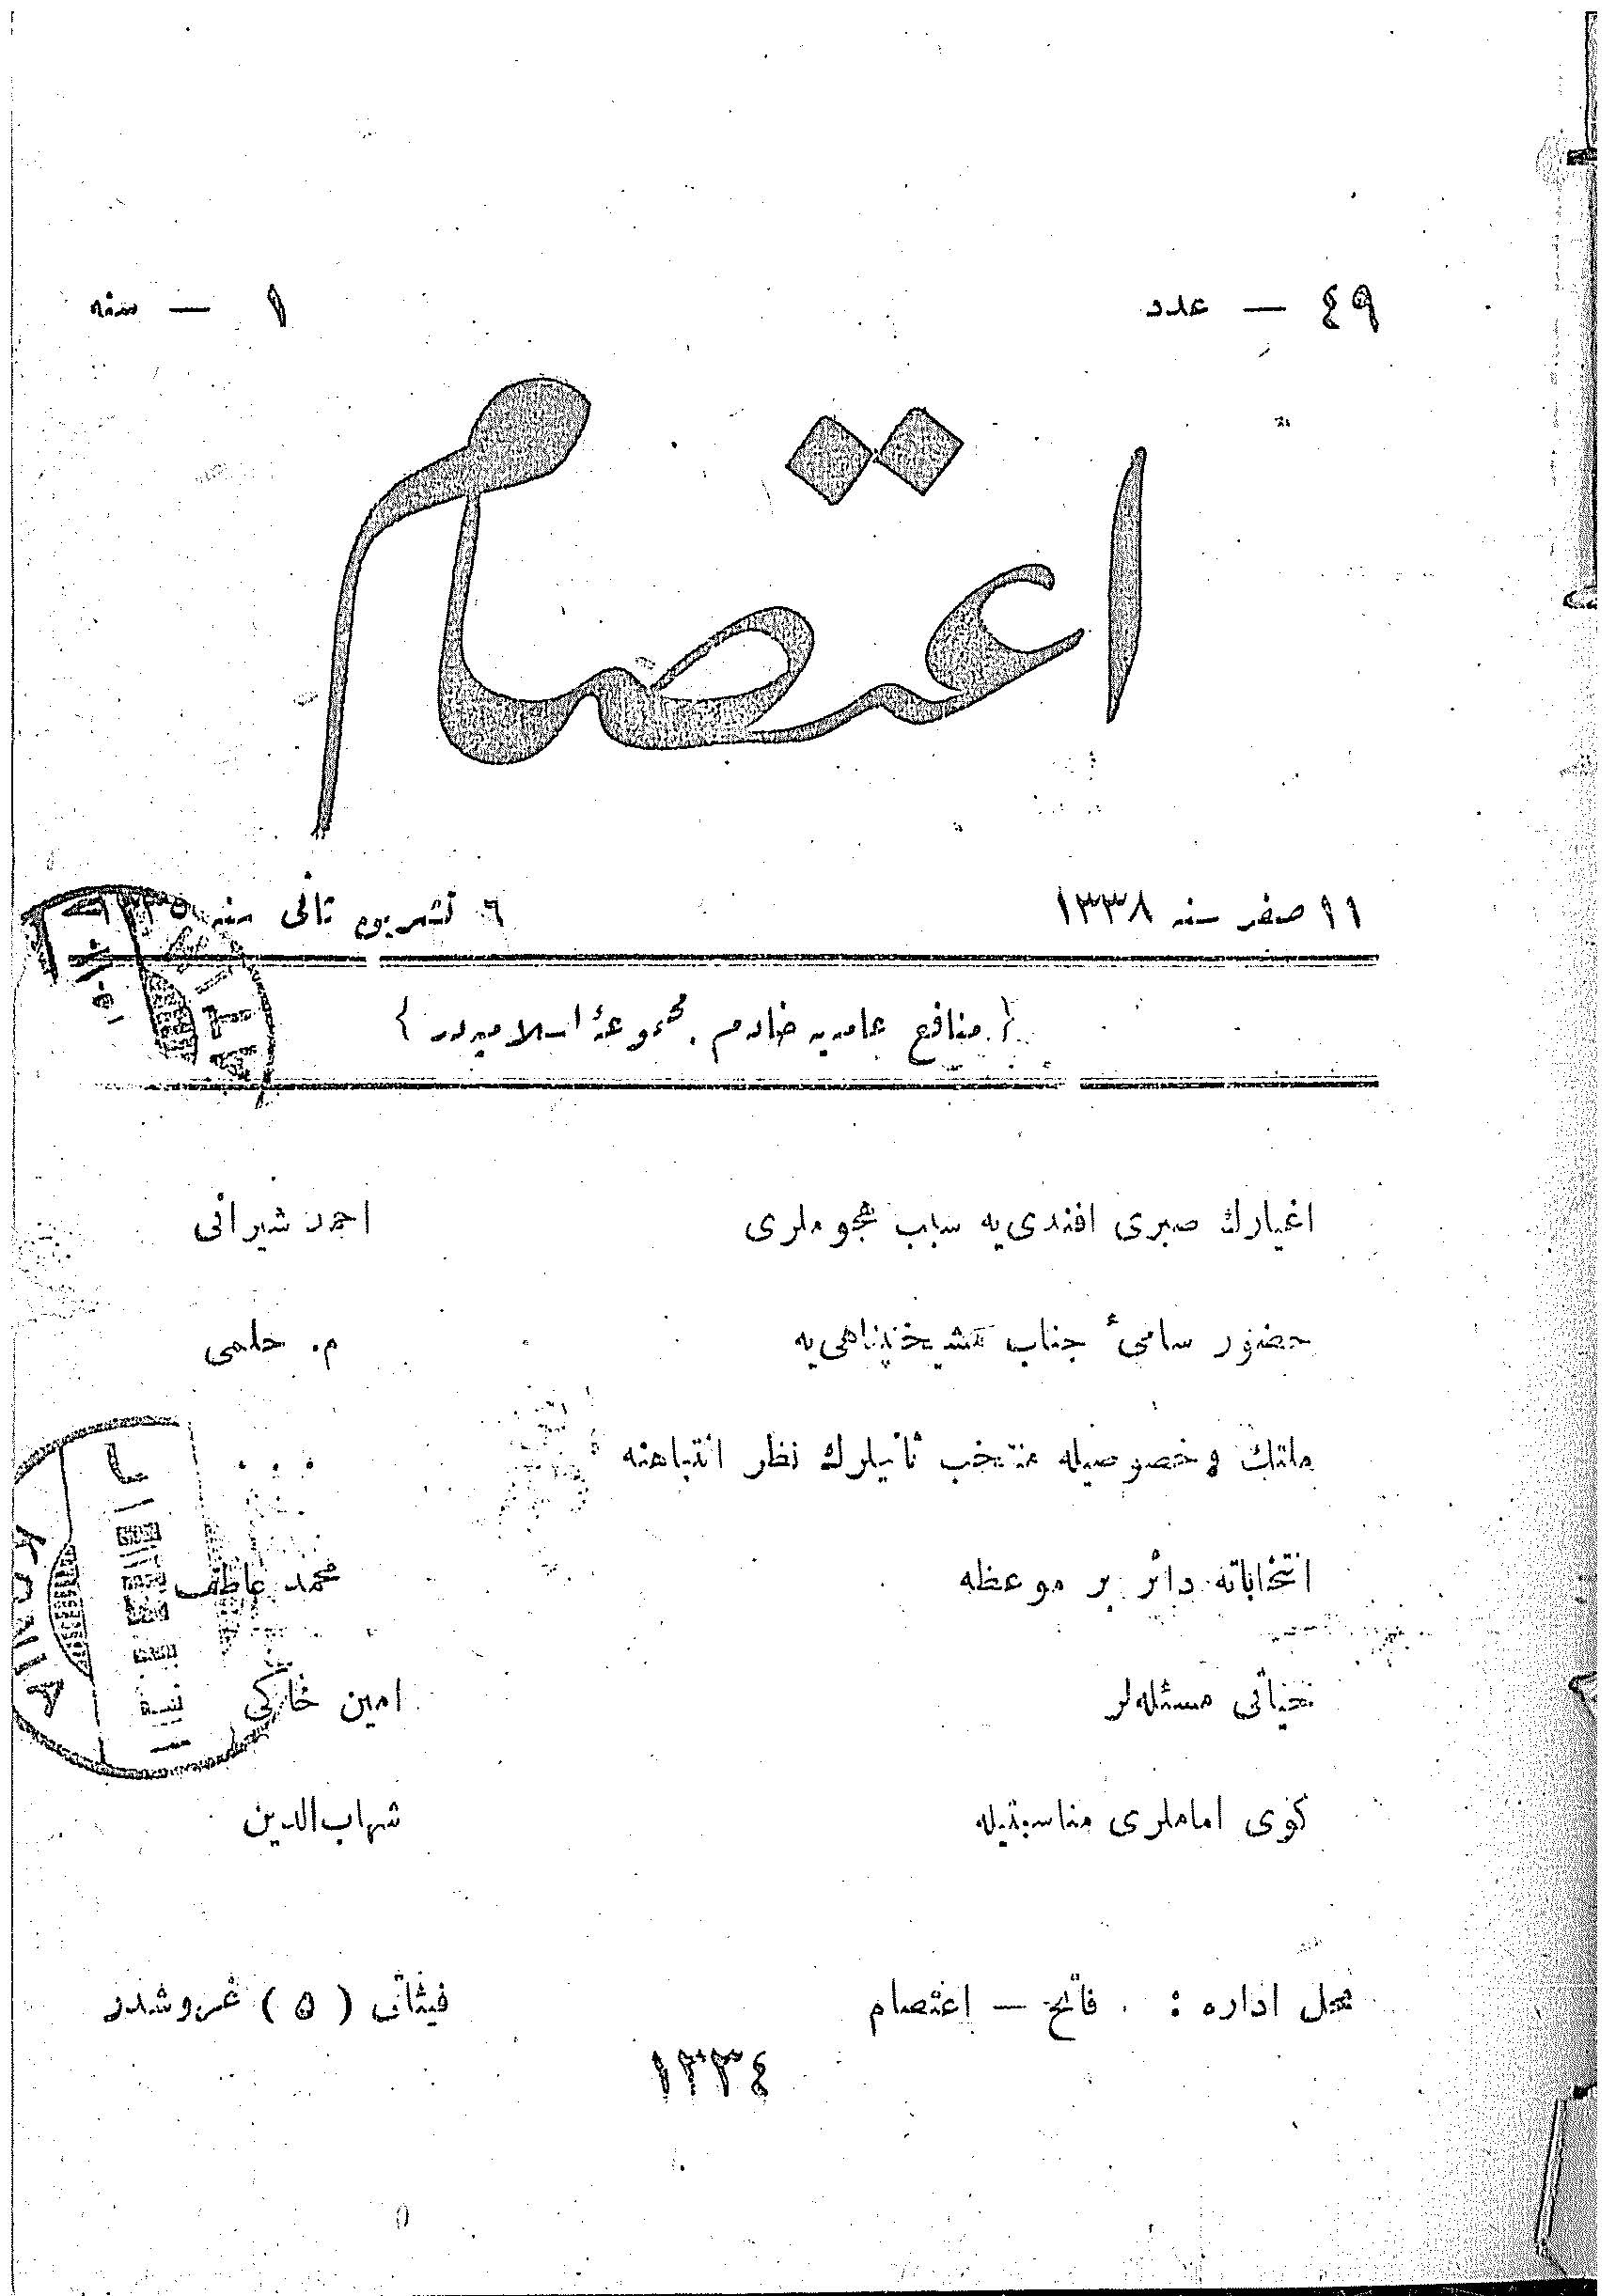 ٤٩ — عدد
١ — سنه
اعتصام
١١ صفر سنه ١٣٣٨
٦ تشرین ثانی سنه
{ منافع عامه‌یه خادم مجموعهٔ اسلامیه‌در }
اغیارك صبری افندی‌یه سبب هجوملری
احمد شیرانی
حضور سامیٔ جناب مشیختپناهی‌یه
م. حلمی
ملتك و خصوصیله منتخب ثانیلرك نظر انتباهنه
. . .
انتخاباته دائر بر موعظه
محمد عاطف
حیاتی مسئله‌لر
امین خاکی
کوی اماملری مناسبتیله
شهاب‌الدین
محل اداره : فاتح — اعتصام
فیئاتی (٥) غروشدر
١٣٣٤
KONIA